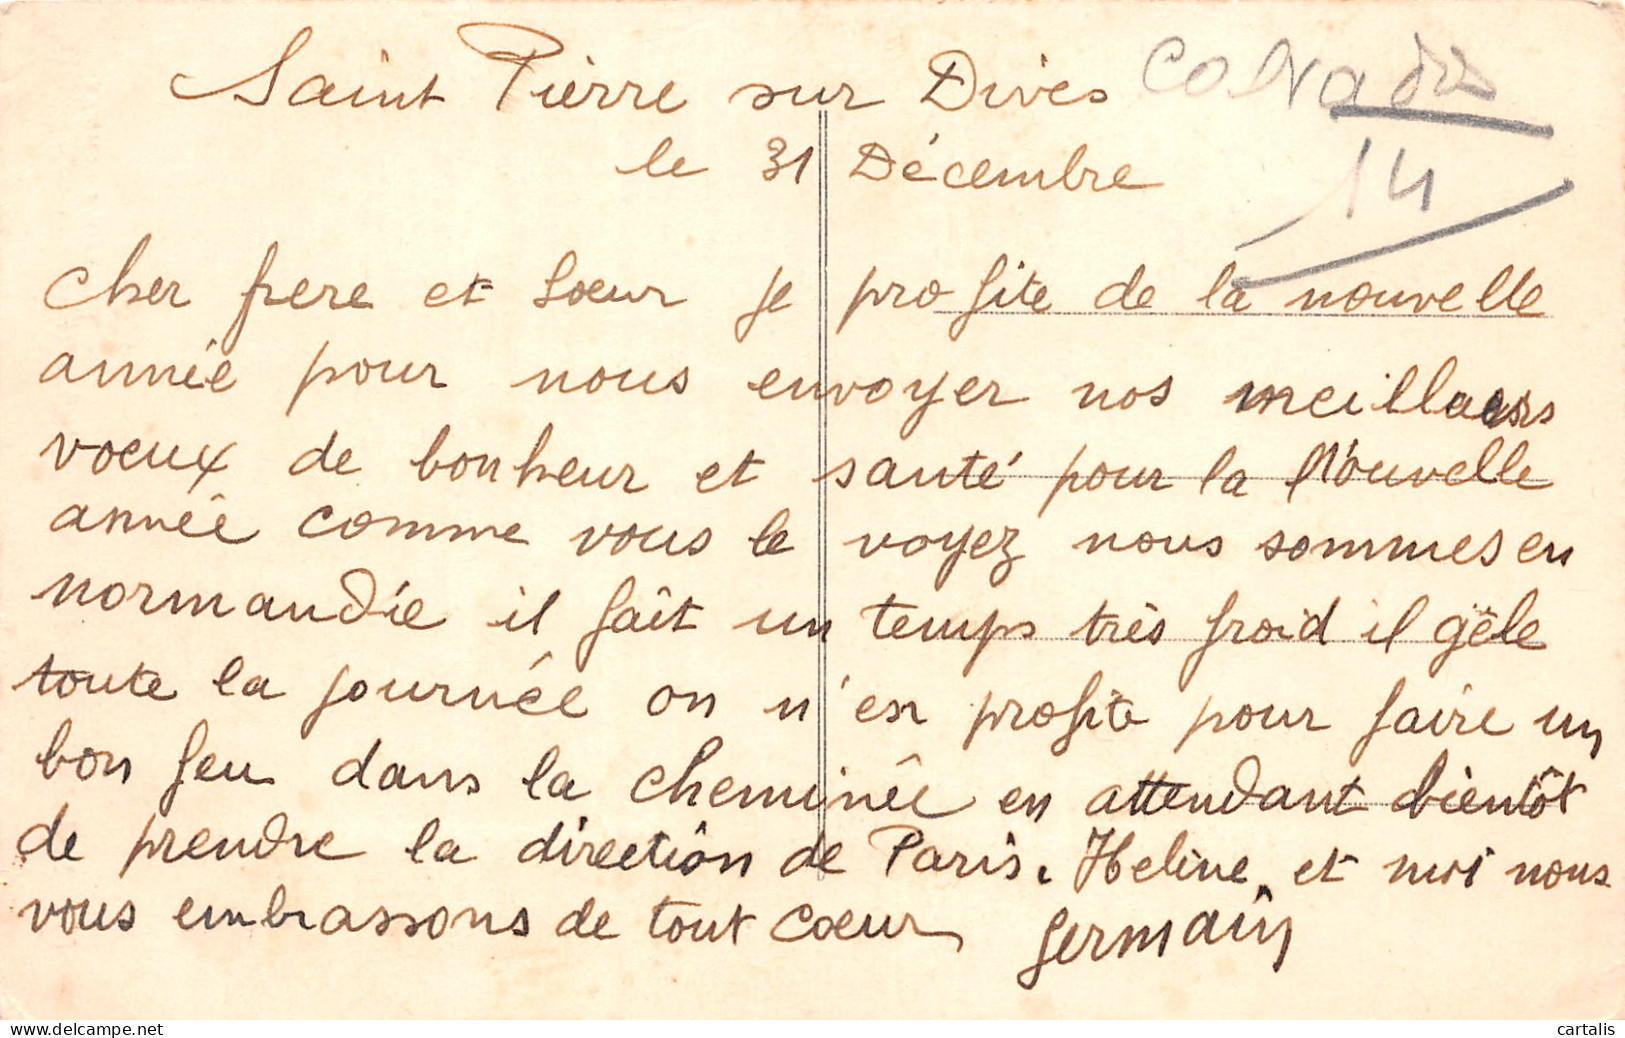 Saint Pierre sur Dives
le 31 Décembre
14
Cher frere et soeur je profite de la nouvelle
année pour nous envoyer nos meilleurs
voeux de bonheur et santé pour la Nouvelle
année comme vous le voyez nous sommes en
normandie il faît un temps très froid il gèle
toute la journée on n'en profite pour faire un
bon feu dans la cheminée en attendant bientôt
de prendre la diréction de Paris. Helène et moi nous
vous embrassons de tout coeur Germain
www.delcampe.net
cartalis